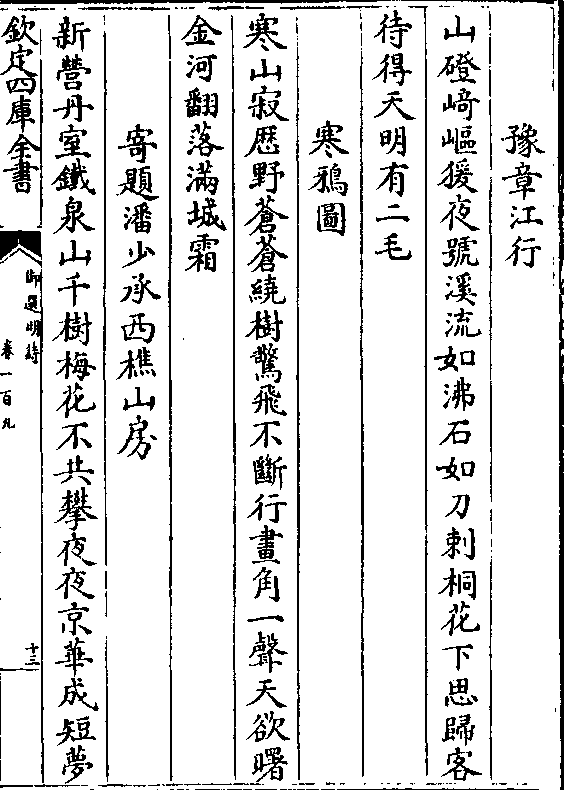 豫章江行
山磴﨑嶇援夜號溪流如沸石如刀刺桐花下思歸客
待得天明有二毛
寒鴉圖
寒山寂歴野蒼蒼繞樹驚飛不斷行畫角一聲天欲曙
金河翻落滿城霜
寄題潘少承西樵山房
新營丹室鐵泉山千樹梅花不共攀夜夜京華成短夢
欽定四庫全書
御選明詩
卷一百九
十三